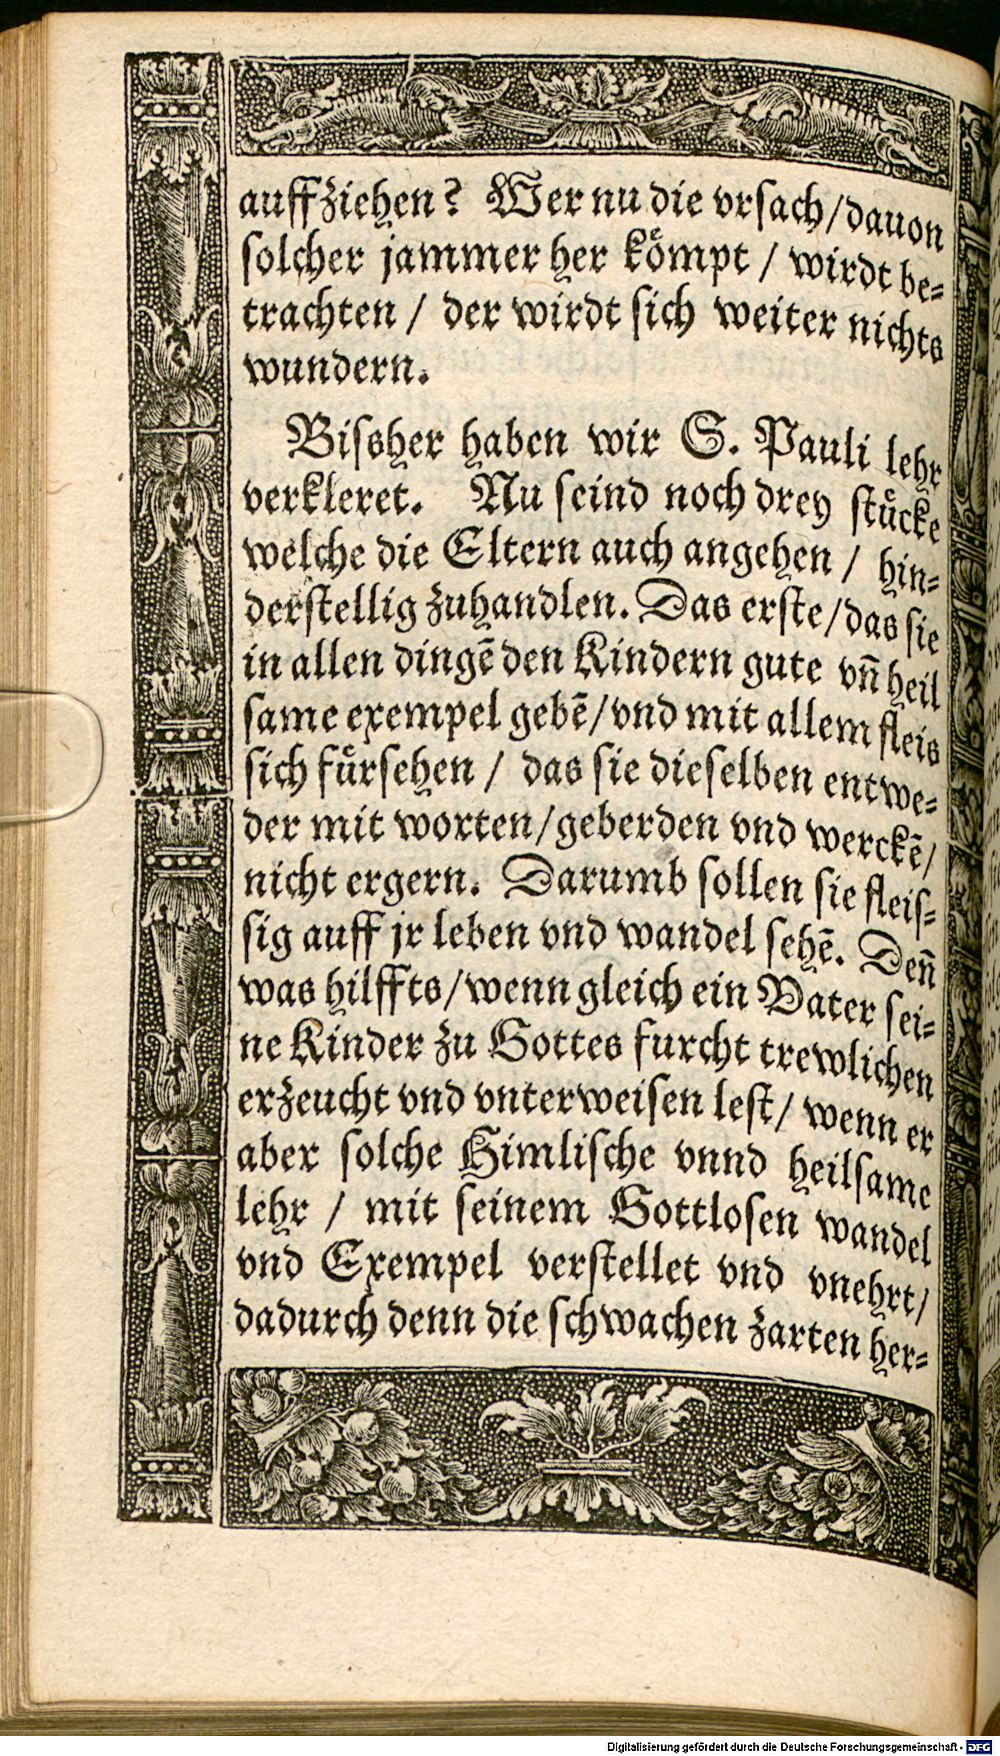 auffziehen? Wer nu die vrsach/dauon
solcher jammer her kömpt / wirdt be=
trachten / der wirdt sich weiter nichts
wundern.
Bissher haben wir S. Pauli lehr
verkleret. Nu seind noch drey stücke
welche die Eltern auch angehen / hin=
derstellig zuhandlen. Das erste/das sie
in allen dingē den Kindern gute vn̄ heil
same exempel gebē/vnd mit allem fleis
sich fürsehen / das sie dieselben entwe=
der mit worten/geberden vnd werckē/
nicht ergern. Darumb sollen sie fleis=
sig auff jr leben vnd wandel sehē. Den̄
was hilffts/wenn gleich ein Vater sei=
ne Kinder zu Gottes furcht trewlichen
erzeucht vnd vnterweisen lest/ wenn er
aber solche Himlische vnnd heilsame
lehr / mit seinem Gottlosen wandel
vnd Exempel verstellet vnd vnehrt/
dadurch denn die schwachen zarten her=
Digitalisierung gefördert durch die Deutsche Forschungsgemeinschaft - DFG